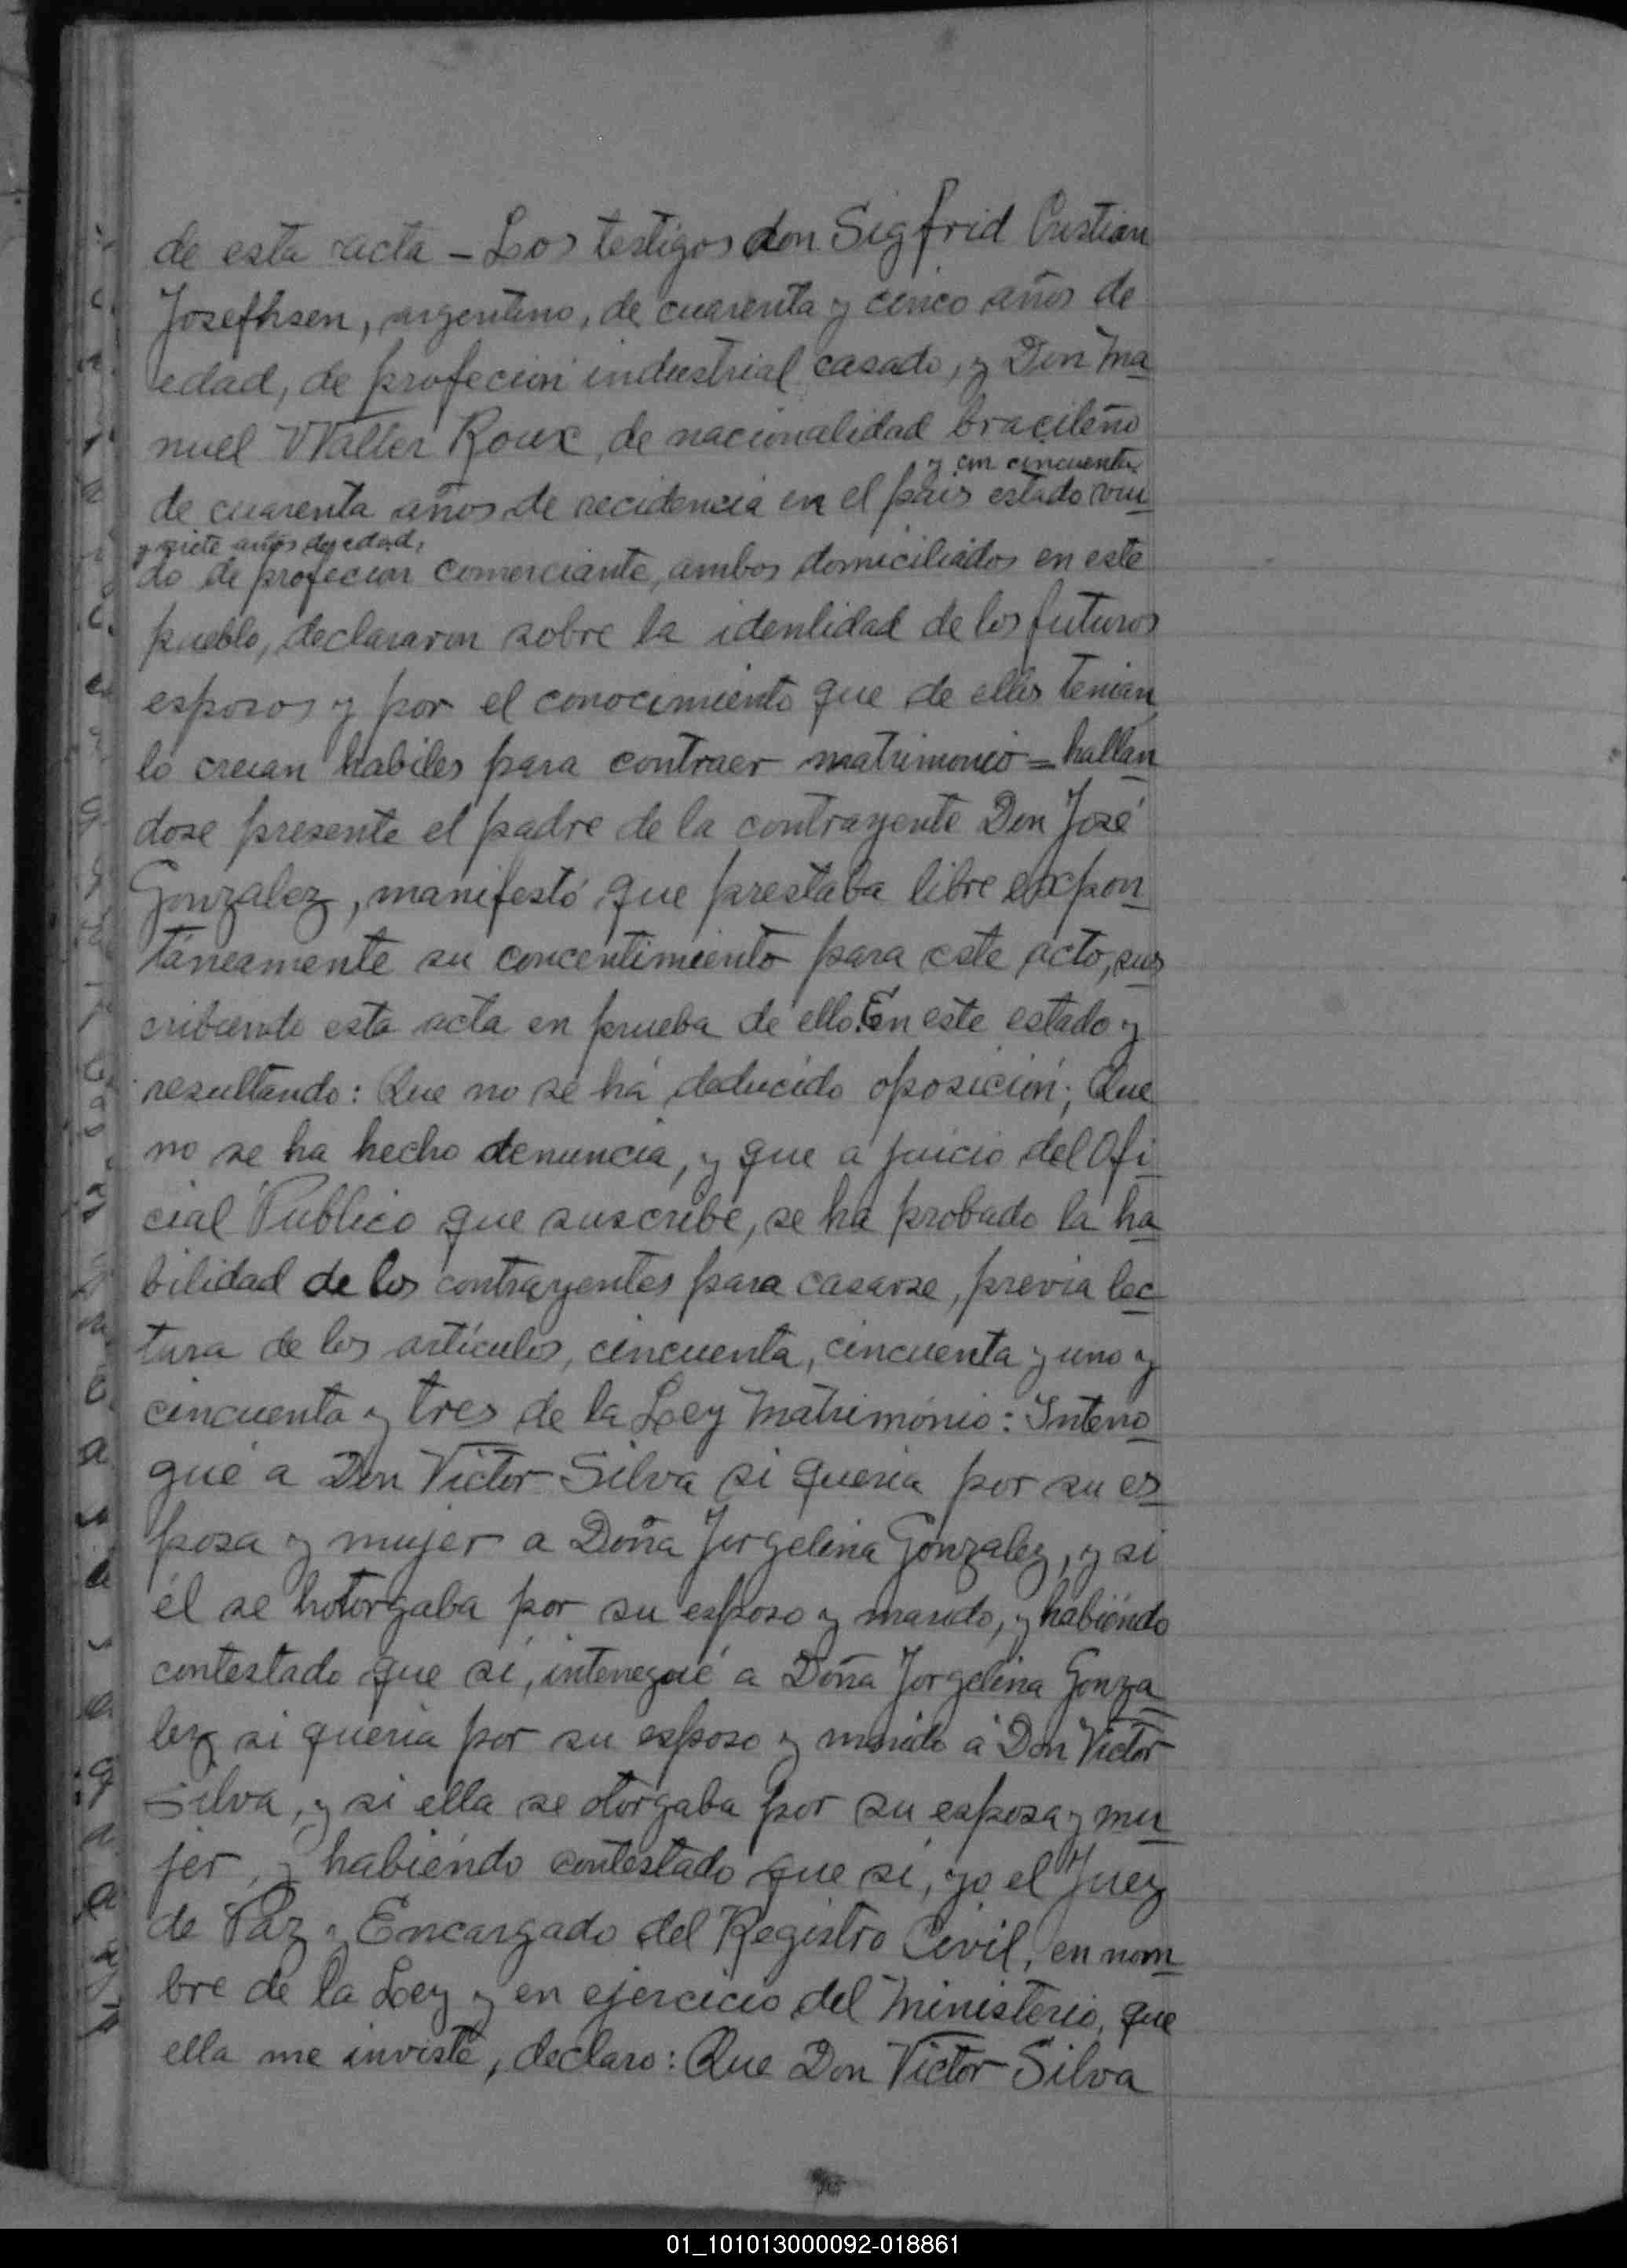 de esta acta – Los testigos don Sigfrid Cristian
Josefhsen, argentino, de cuarenta y cinco años de
edad, de profecion industrial casado, y Don Ma
nuel Walter Roux, de nacionalidad bracileño
y con cincuenta
de cuarenta años de recidencia en el pais estado viu
y siete años de edad,
do de profecion comerciante, ambos domiciliados en este
pueblo, declararon sobre la identidad de los futuros
esposos y por el conocimiento que de ellos tenian
lo creian habiles para contraer matrimonio = hallan
dose presente el padre de la contrayente Don José
Gonzalez, manifestó que prestaba libre expon
táneamente su concentimiento para este acto, sus
cribiendo esta acta en prueba de ello. En este estado y
resultando: Que no se há deducido oposición; Que
no se ha hecho denuncia, y que a juicio del Ofi
cial Publico que suscribe, se ha probado la ha
bilidad de los contrayentes para casarse, previa lec
tura de los artículos, cincuenta, cincuenta y uno y
cincuenta y tres de la Ley Matrimonio: Interro
gué a Don Victor Silva si queria por su es
posa y mujer a Doña Jorgelina Gonzalez, y si
él se hotorgaba por su esposo y marido, y habiéndo
contestado que si, interregué a Doña Jorgelina Gonza
lez si queria por su esposo y marido a Don Victor
Silva, y si ella se otorgaba por su esposa y mu
jer, y habiéndo contestado que si, yo el Juez
de Paz y Encargado del Registro Civil, en nom
bre de la Ley y en ejercicio del Ministerio, que
ella me inviste, declaro: Que Don Victor Silva
01_101013000092-018861